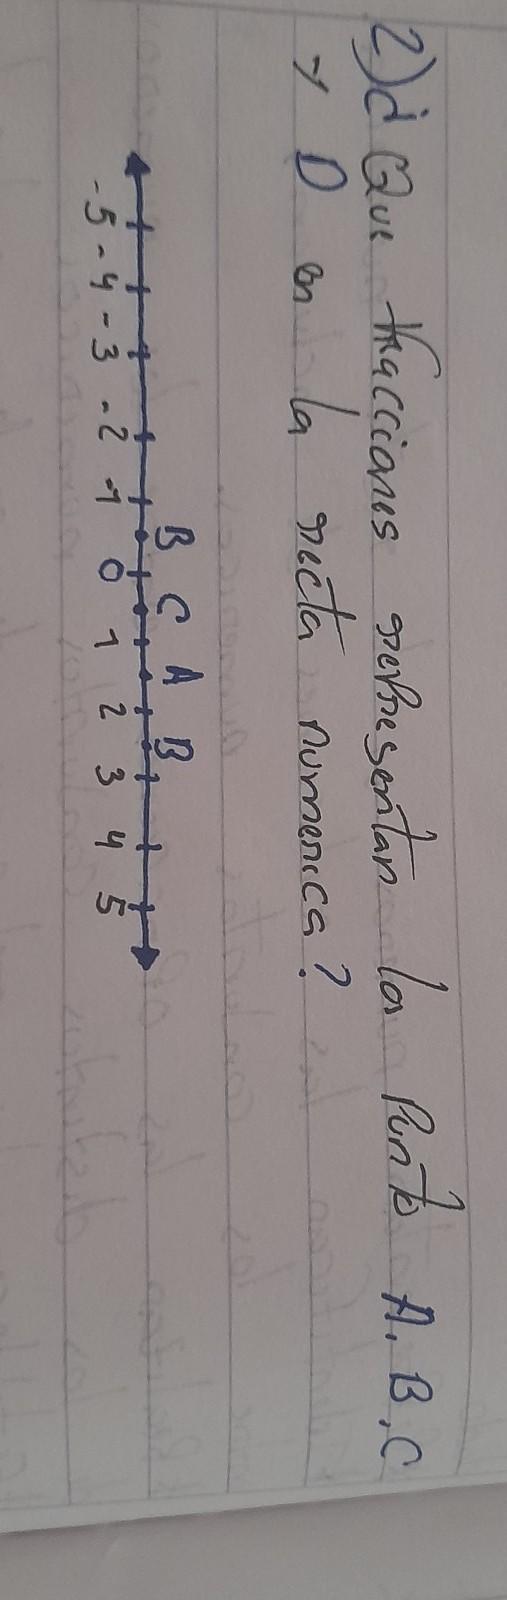 2) ¿ Que fracciones representan los Punto A, B, C
y D en la recta numerica?
B C A B
-5 -4 -3 -2 -1 0 1 2 3 4 5